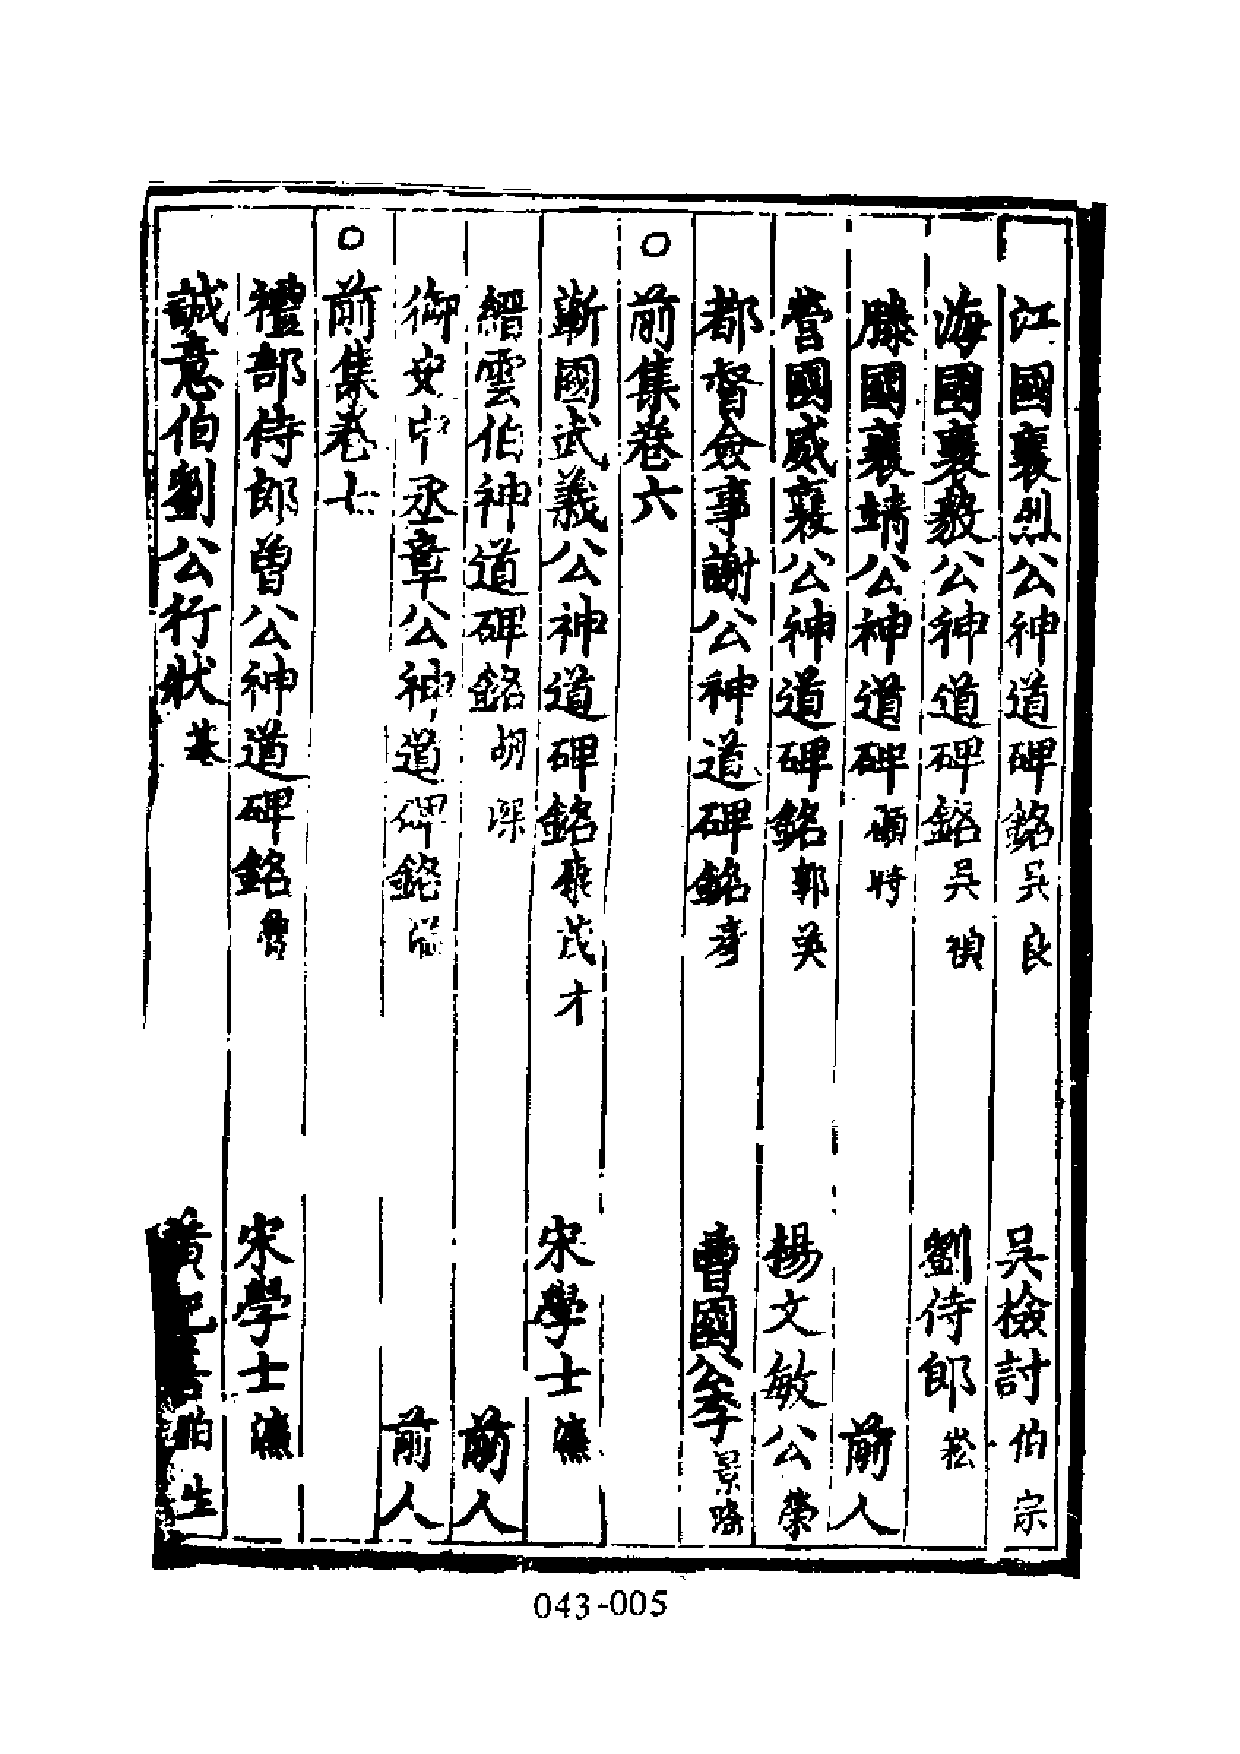 江國襄烈公神道碑銘吳良 吳檢討伯宗
海國襄毅公神道碑銘吳禎 劉侍郎崧
滕國襄靖公神道碑顧時 前人
營國威襄公神道碑銘郭英 楊文敏公榮
都督僉事謝公神道碑銘彥 曹國公李景隆
○前集卷六
蘄國武義公神道碑銘康茂才 宋學士濂
縉雲伯神道碑銘胡深 前人
御史中丞章公神道碑銘溢 前人
○前集卷七
禮部侍郎曾公神道碑銘魯 宋學士濂
誠意伯劉公行狀基 黃記善伯生
043-005